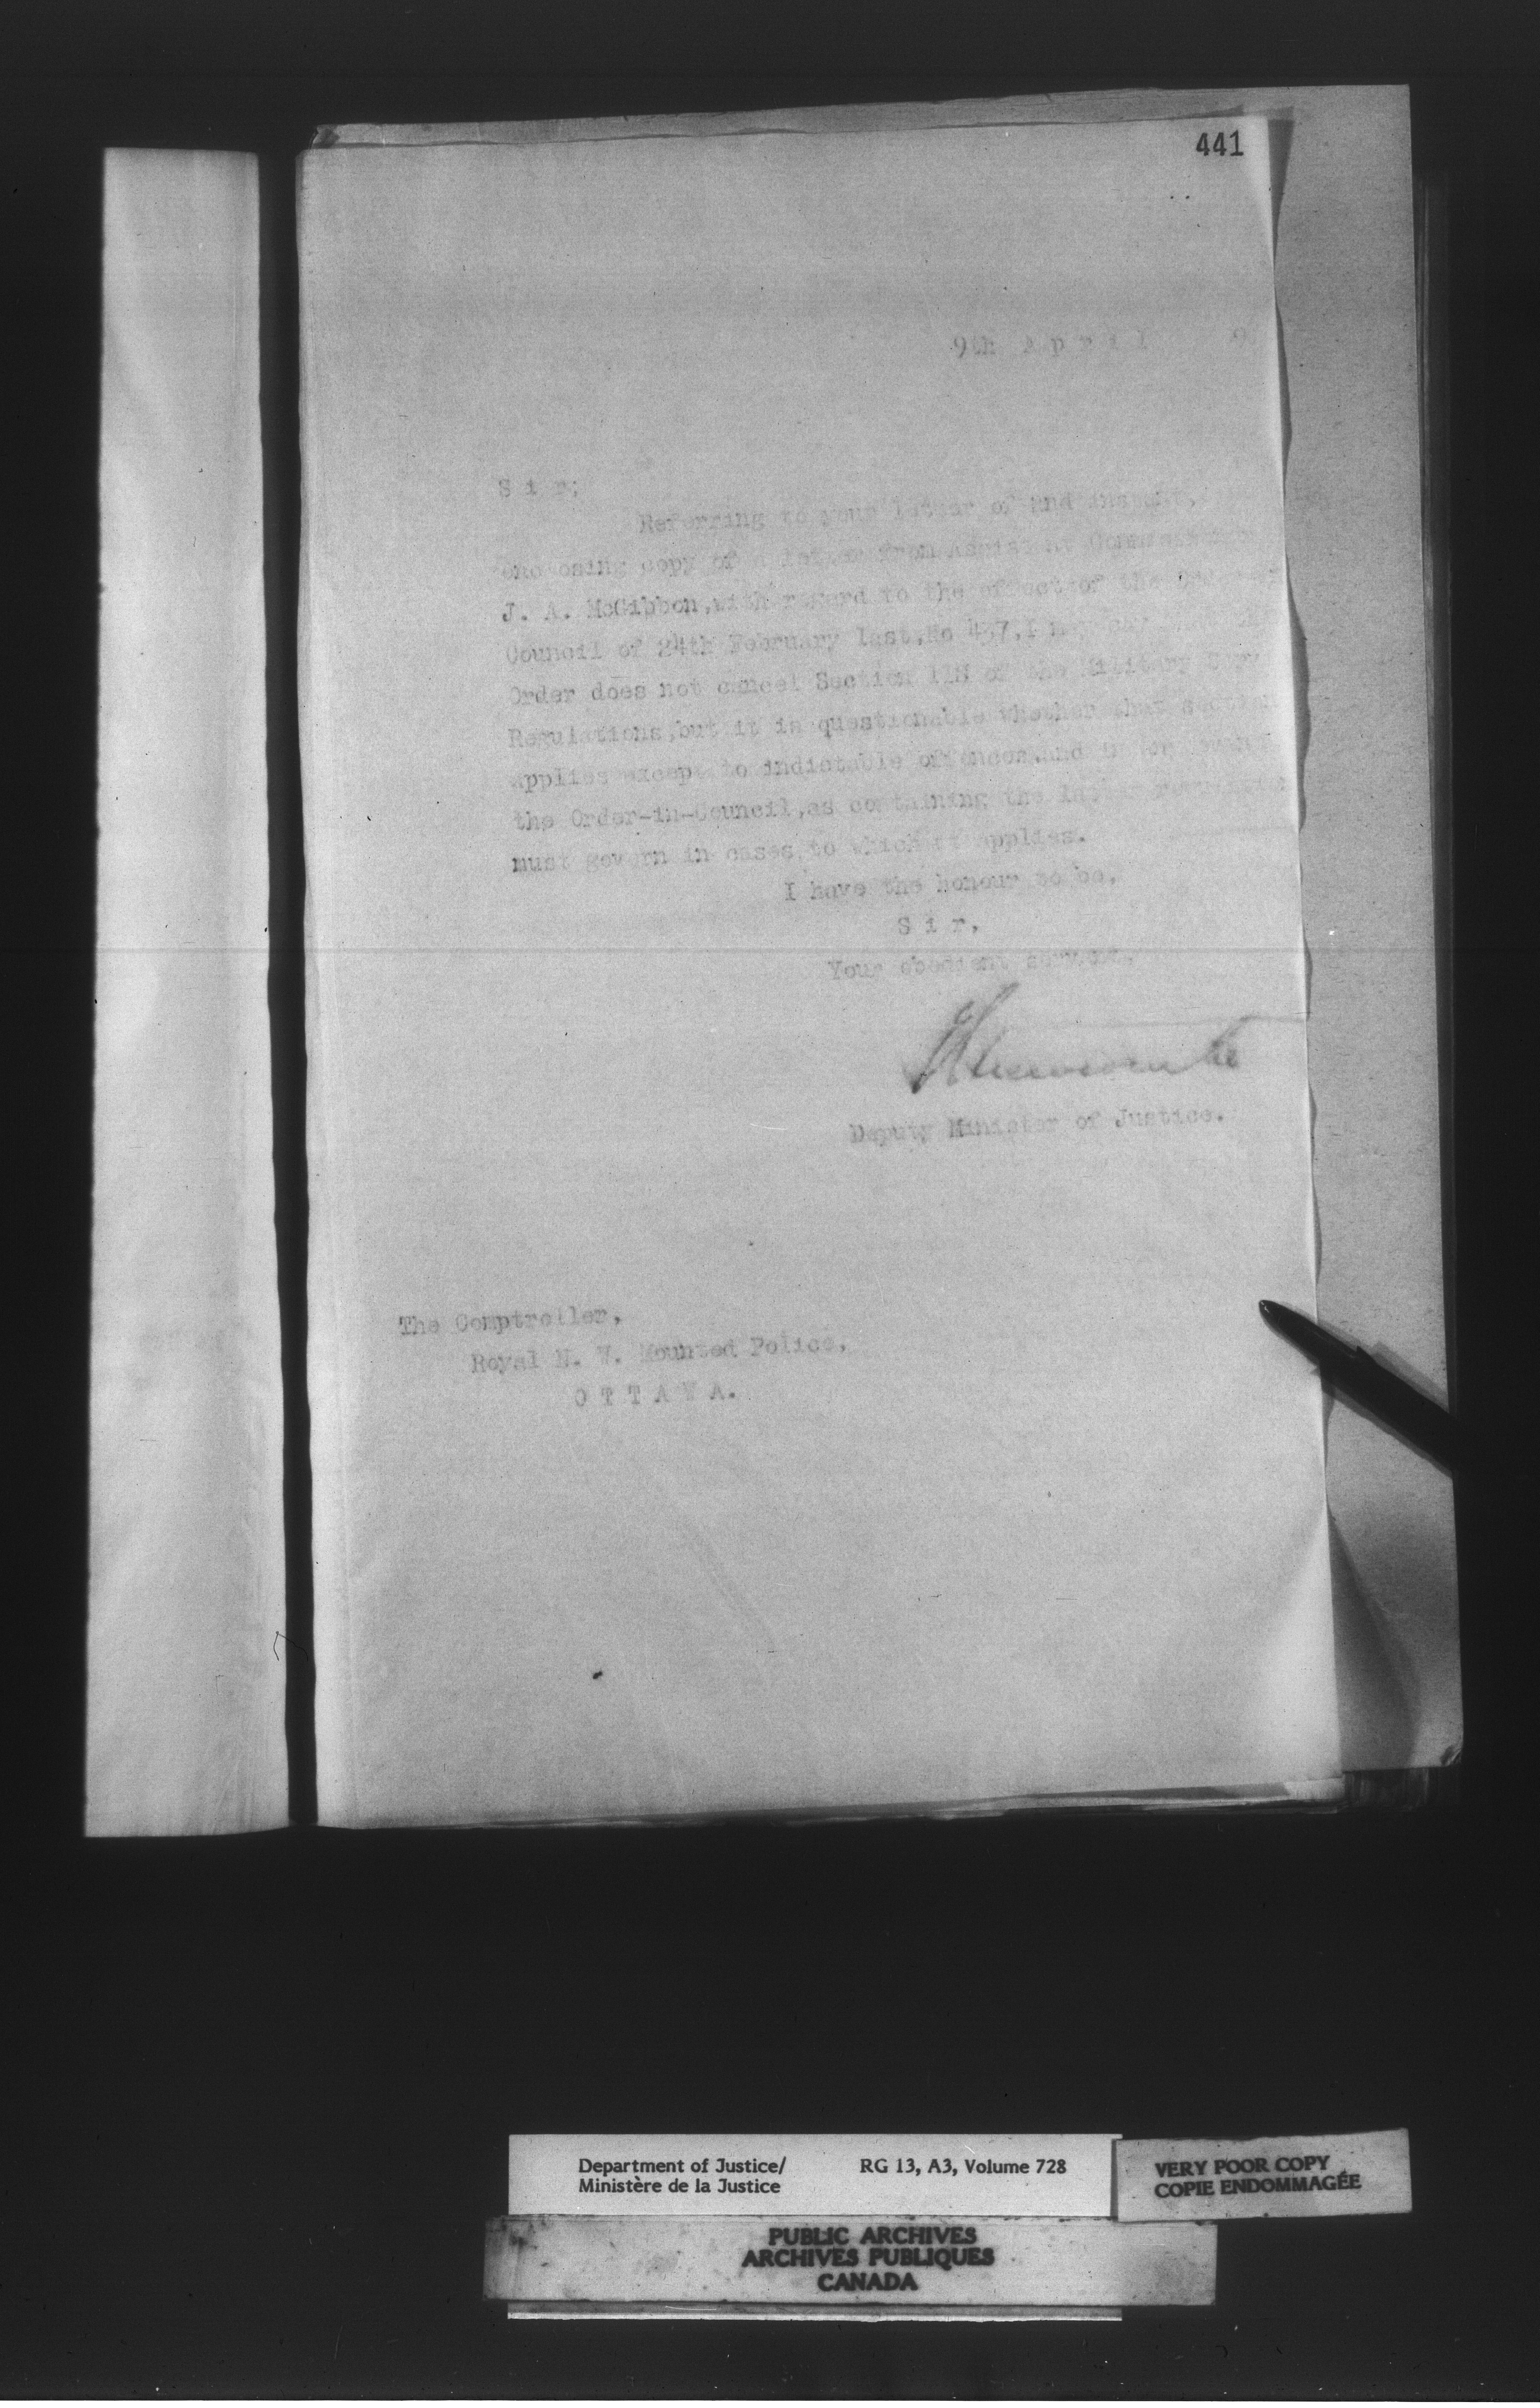 441
9th April 9
Sir;
Referring to your letter of 2nd instant,
enclosing copy of a letter from Assistant Commissioner
J. A. McGibbon, with regard to the effect of the Order-in
Council of 24th February last, No 437, I may say that
Order does not cancel Section of the Military
Regulations, but it is questionable whether that section
applies except to indictable offences, and
the Order-in-Council, as containing the
must govern in cases to which it applies.
I have the honour to be,
Sir,
Your obedient servant,
Deputy Minister of Justice.
The Comptroller,
Royal N. W. Mounted Police,
OTTAWA.
Department of Justice/ RG 13, A3, Volume 728
Ministère de la Justice
VERY POOR COPY
COPIE ENDOMMAGÉE
PUBLIC ARCHIVES
ARCHIVES PUBLIQUES
CANADA